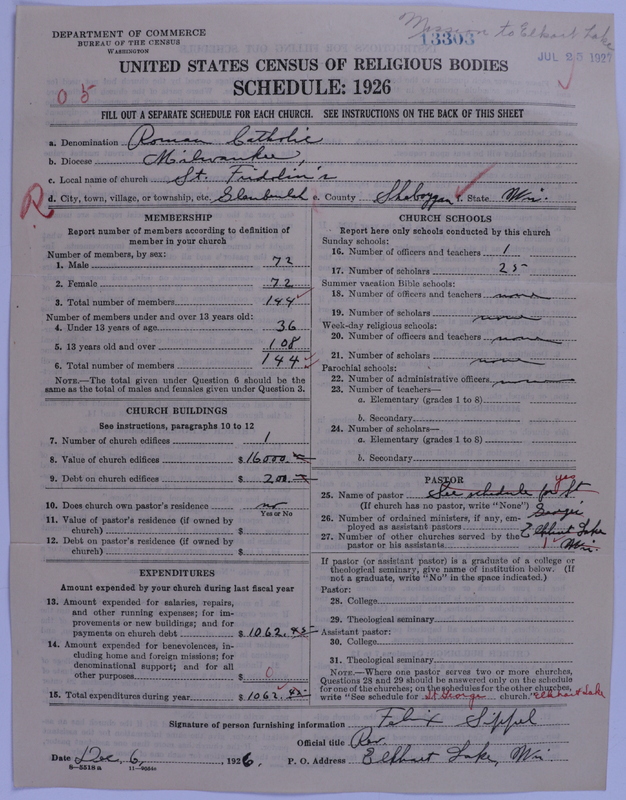 Mission to Elkhart Lake
DEPARTMENT OF COMMERCE
BUREAU OF THE CENSUS
WASHINGTON
13303
JUL 25 1927
UNITED STATES CENSUS OF RELIGIOUS BODIES
SCHEDULE: 1926
0 5
FILL OUT A SEPARATE SCHEDULE FOR EACH CHURCH. SEE INSTRUCTIONS ON THE BACK OF THIS SHEET
a. Denomination Roman Catholic
b. Diocese Milwaukee,
c. Local name of church St. Fridolin's
d. City, town, village, or township, etc. Glenbulah e. County Sheboygan f. State Wis.
R
MEMBERSHIP
Report number of members according to definition of
member in your church
Number of members, by sex:
1. Male 72
2. Female 72
3. Total number of members 144
Number of members under and over 13 years old:
4. Under 13 years of age 36
5. 13 years old and over 108
6. Total number of members 144
NOTE.—The total given under Question 6 should be the
same as the total of males and females given under Question 3.
CHURCH BUILDINGS
See instructions, paragraphs 10 to 12
7. Number of church edifices 1
8. Value of church edifices $16000.
9. Debt on church edifices $ 200.
10. Does church own pastor's residence? no
Yes or No
11. Value of pastor's residence (if owned by
church) $
12. Debt on pastor's residence (if owned by
church) $
EXPENDITURES
Amount expended by your church during last fiscal year
13. Amount expended for salaries, repairs,
and other running expenses; for im-
provements or new buildings; and for
payments on church debt $ 1062.45
14. Amount expended for benevolences, in-
cluding home and foreign missions; for
denominational support; and for all
other purposes $ 0
15. Total expenditures during year $ 1062.45
CHURCH SCHOOLS
Report here only schools conducted by this church
Sunday schools:
16. Number of officers and teachers 1
17. Number of scholars 25
Summer vacation Bible schools:
18. Number of officers and teachers none
19. Number of scholars none
Week-day religious schools:
20. Number of officers and teachers none
21. Number of scholars none
Parochial schools:
22. Number of administrative officers none
23. Number of teachers—
a. Elementary (grades 1 to 8)
b. Secondary
24. Number of scholars—
a. Elementary (grades 1 to 8)
b. Secondary
PASTOR
yes
25. Name of pastor See schedule for St
(If church has no pastor, write "None") George
26. Number of ordained ministers, if any, em-
ployed as assistant pastors Elkhart Lake
27. Number of other churches served by the
pastor or his assistants 1 Wis.
If pastor (or assistant pastor) is a graduate of a college or
theological seminary, give name of institution below. (If
not a graduate, write "No" in the space indicated.)
Pastor:
28. College
29. Theological seminary
Assistant pastor:
30. College
31. Theological seminary
NOTE.—Where one pastor serves two or more churches,
Questions 28 and 29 should be answered only on the schedule
for one of the churches; on the schedules for the other churches,
write "See schedule for St George church." Elkhart Lake
Signature of person furnishing information Felix Sippel
Official title Rev.
Date Dec. 6, 1926. P. O. Address Elkhart Lake, Wis.
8—5518 a 11—9064a